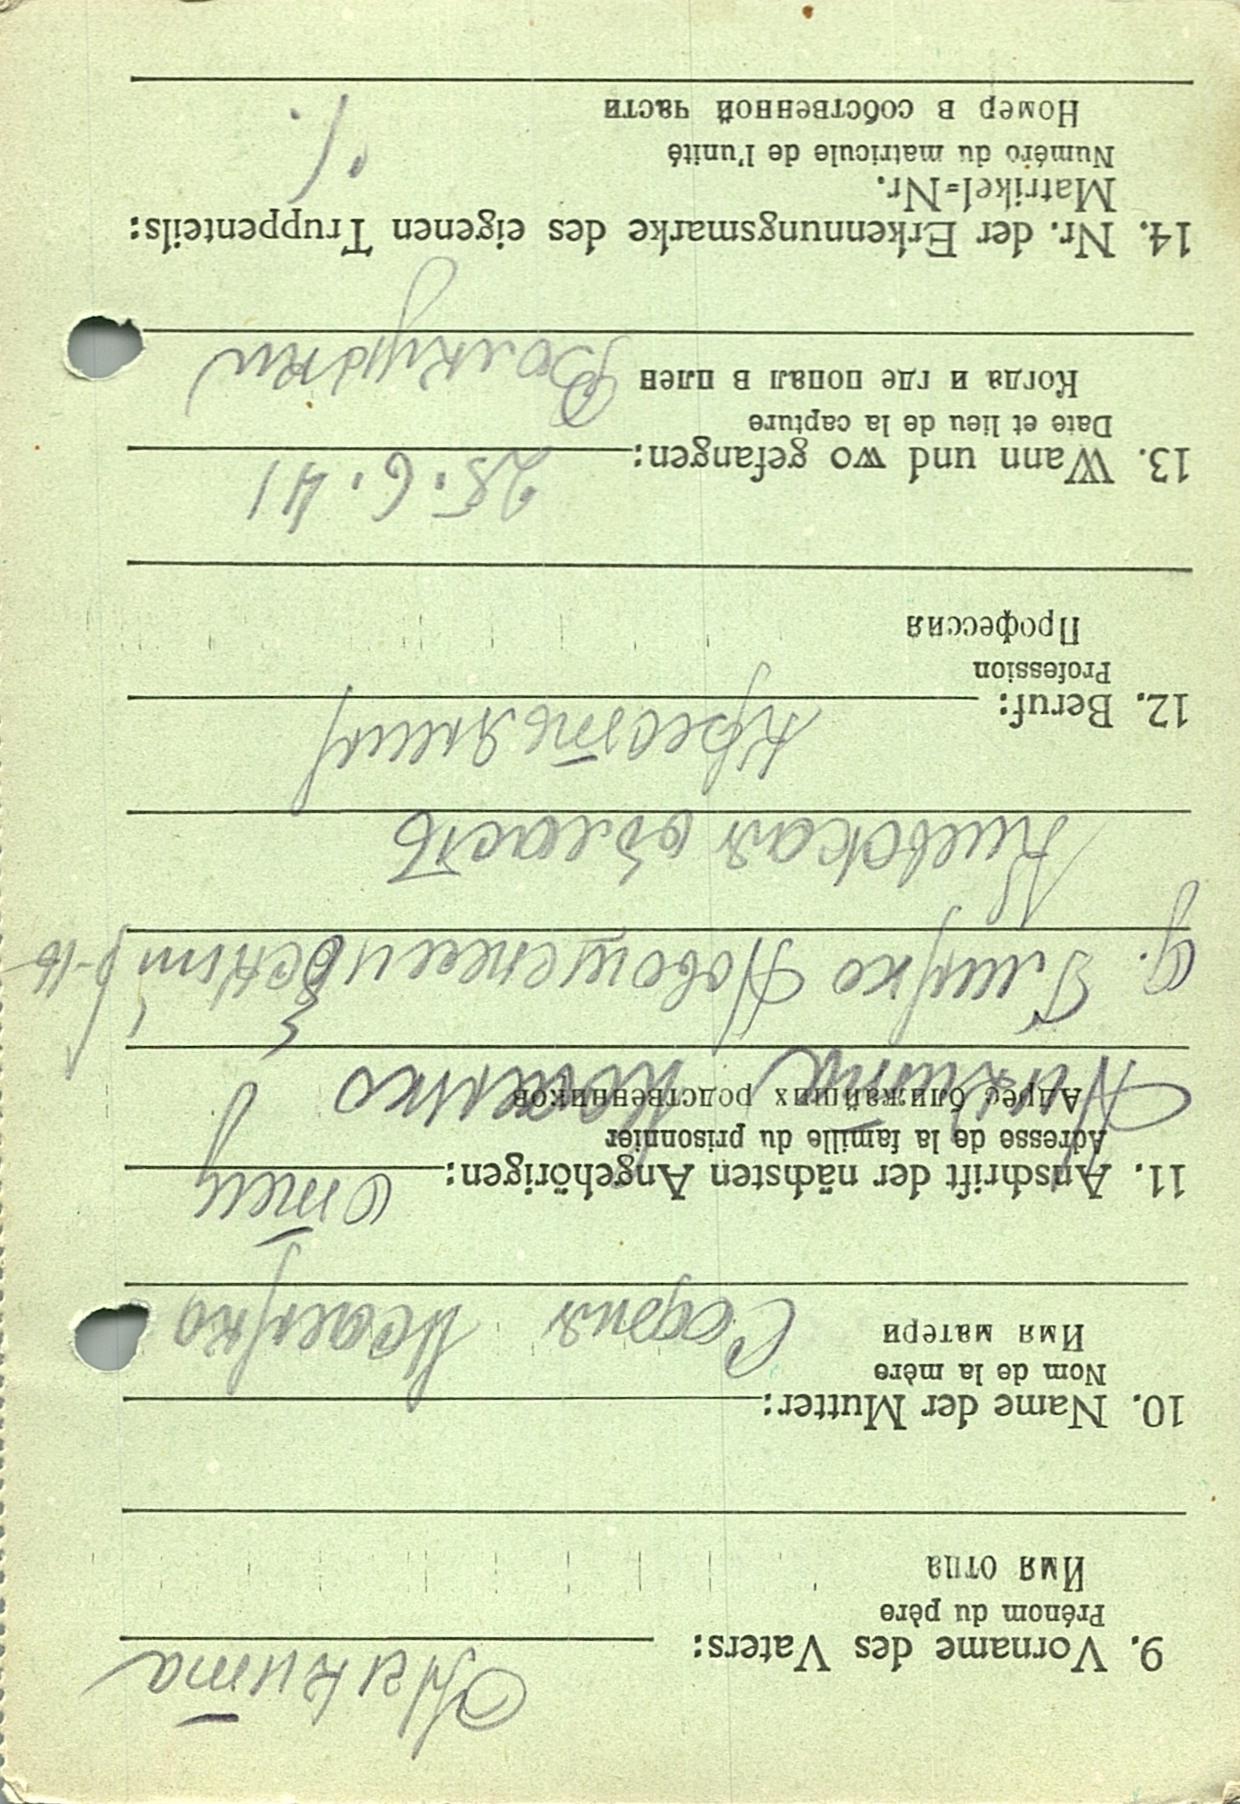 9. Vorname des Vaters: Никита
Prénom du père
Имя отца
10. Name der Mutter:
Nom de la mère
Имя матери София Исаенко
11. Anschrift der nächsten Angehörigen: отец
Adresse de la famille du prisonnier
Адрес ближайших родственников
Никита Исаенко
д.
Киевская область
12. Beruf: крестьянин
Profession
Профессия
13. Wann und wo gefangen: 25.6.41
Date et lieu de la capture
Когда и где попал в плен
14. Nr. der Erkennungsmarke des eigenen Truppenteils:
Matrikel=Nr.
Numéro du matricule de l'unité
Номер в собственной части